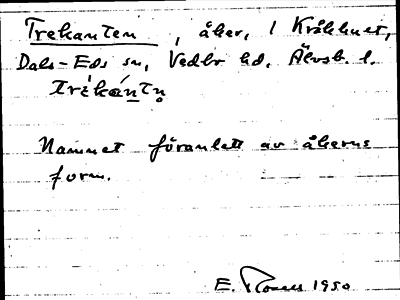 Trekanten, åker, 1 Kråkhult,
Dals-Eds sn, Vedbo hd, Älvsb. l.
Namnet föranlett av åkerns
form.
E. 1950